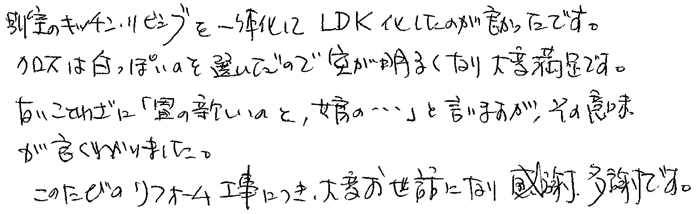 別室のキッチン・リビングを一体化しLDK化したのが良かったです。
クロスは白っぽいのを選んだので室が明るくなり大変満足です。
古いことわざに「畳の新しいのと、女房の…」と言いますが、その意味
が良くわかりました。
このたびのリフォーム工事につき、大変お世話になり感謝、多謝です。